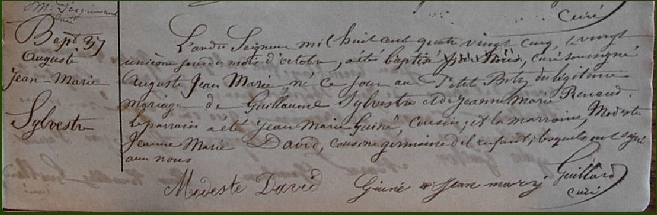 Curé
Bapt. 37
Auguste
Jean-Marie
Sylvestre
L'an du Seigneur mil huit cent quatre vingt cinq, le vingt
unième jour du mois d'octobre, a été baptisé par Nous, curé soussigné
Auguste Jean Marie, né ce jour au Petit Bily en légitime
mariage de Guillaume Sylvestre et de Jeanne Marie Renaud.
Le parrain a été Jean Marie Guiné cousin, et la marraine, Modeste
Jeanne Marie David, cousine germaine de l'enfant, lesquels ont signé
avec nous
Modeste David Guiné Jean marie Guillard
curé